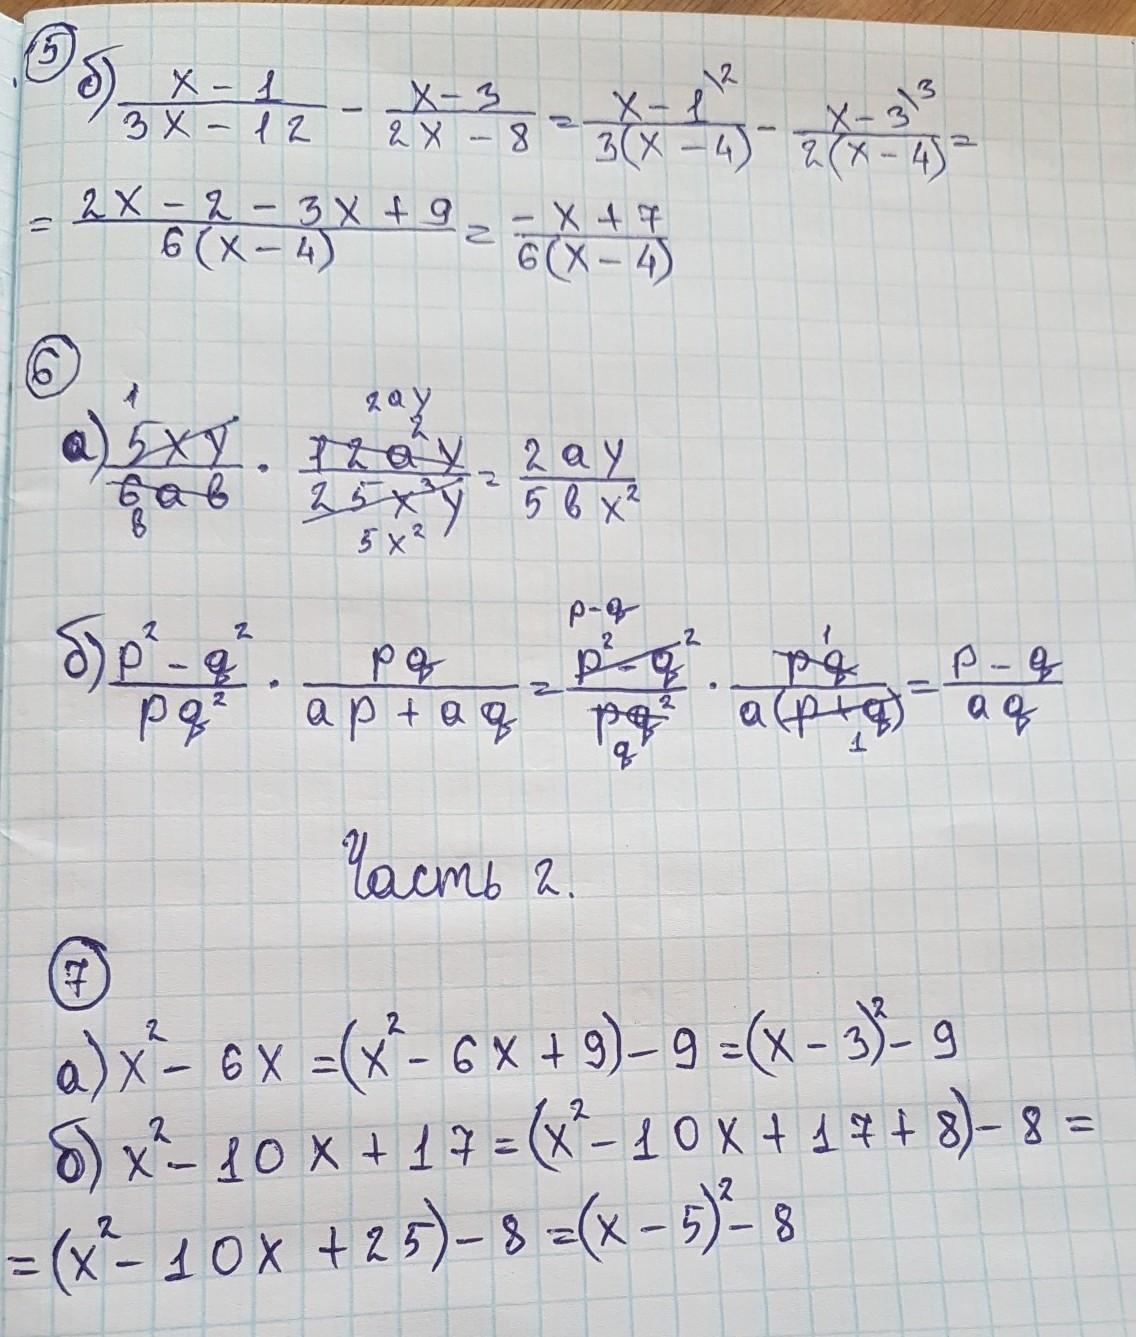 5
б) (x - 1)/(3x - 12) - (x - 3)/(2x - 8) = (x - 1^{\2})/(3(x - 4)) - (x - 3^{\3})/(2(x - 4)) =
= (2x - 2 - 3x + 9)/(6(x - 4)) = (-x + 7)/(6(x - 4))
6
1 2ay
а) 5xy/6ab · 12ay/25x³y = 2ay/5bx²
2
b 5x²
p-q 1
б) (p² - q²)/(pq²) · pq/(ap + aq) = (p² - q²)/(pq²) · pq/(a(p+q)) = (p - q)/(aq)
q 1
Часть 2.
7
а) x² - 6x = (x² - 6x + 9) - 9 = (x - 3)² - 9
б) x² - 10x + 17 = (x² - 10x + 17 + 8) - 8 =
= (x² - 10x + 25) - 8 = (x - 5)² - 8